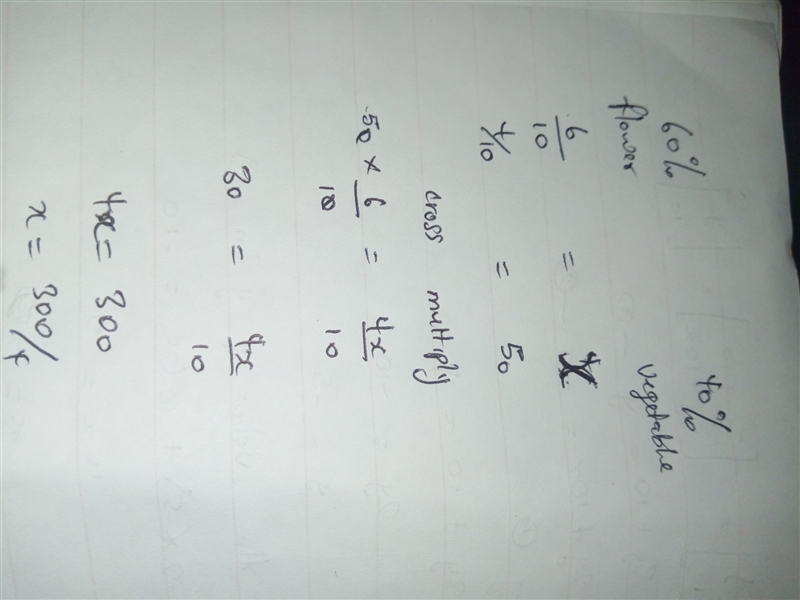 60% 40%
flower vegetable
6/10 = x
4/10 = 50
cross multiply
50 × 6/10 = 4x/10
30 = 4x/10
4x = 300
x = 300/4